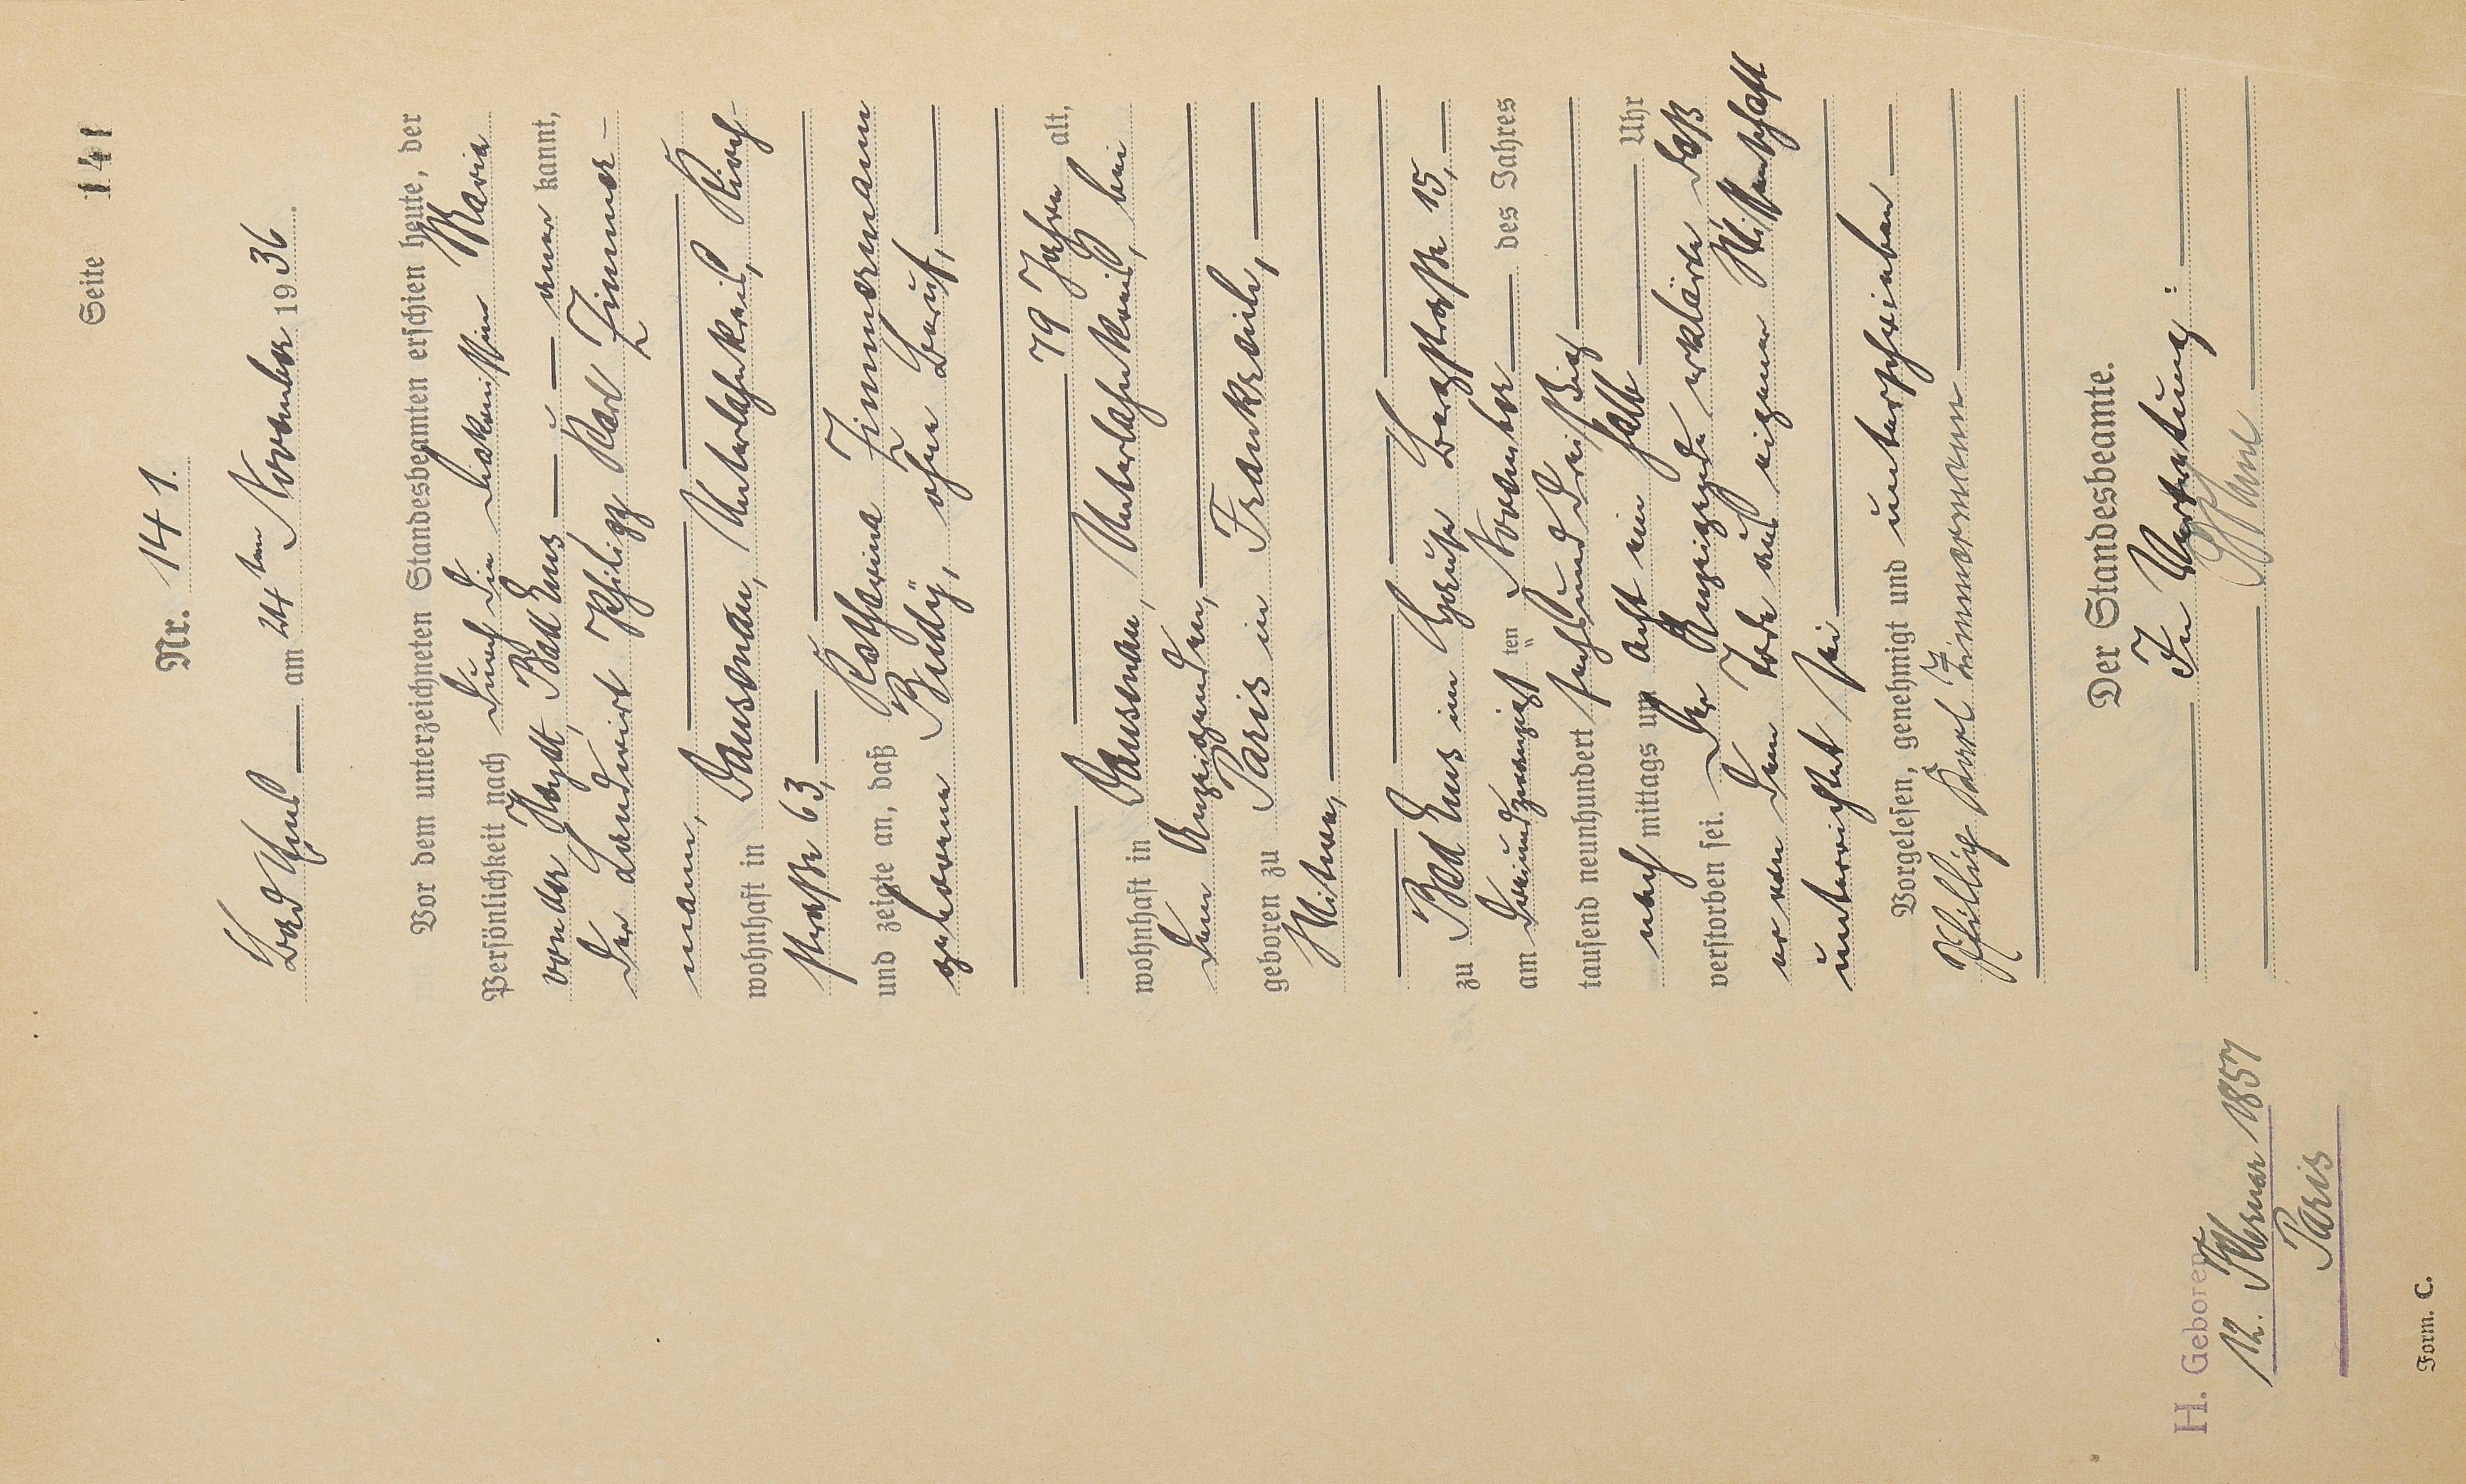 Seite 141
Nr. 141.
Bad Ems am 24ten November 1936.
Vor dem unterzeichneten Standesbeamten erschien heute, der
Persönlichkeit nach durch die Diakonissin Maria
von der Heydt, Bad Ems anerkannt,
der Landwirt Philipp Karl Zimmer-
mann,
wohnhaft in Dausenau, Unterlahnkreis, Kirch-
straße 63,
und zeigte an, daß Katharina Zimmermann
geborene Budÿ, ohne Beruf,
79 Jahre alt,
wohnhaft in Dausenau, Unterlahnkreis, bei
dem Anzeigenden,
geboren zu Paris in Frankreich,
Witwe,
zu Bad Ems im Hause Bergstraße 15,
am dreiundzwanzigsten November des Jahres
tausend neunhundert sechsunddreißig
nachmittags um acht ein halb Uhr
verstorben sei. Der Anzeigende erklärte daß
er von dem Tode aus eigener Wissenschaft
unterrichtet sei
Vorgelesen, genehmigt und unterschrieben
Philipp Karl Zimmermann
Der Standesbeamte.
In Vertretung:
H. Geboren
12. Februar 1857
Paris
Form. C.